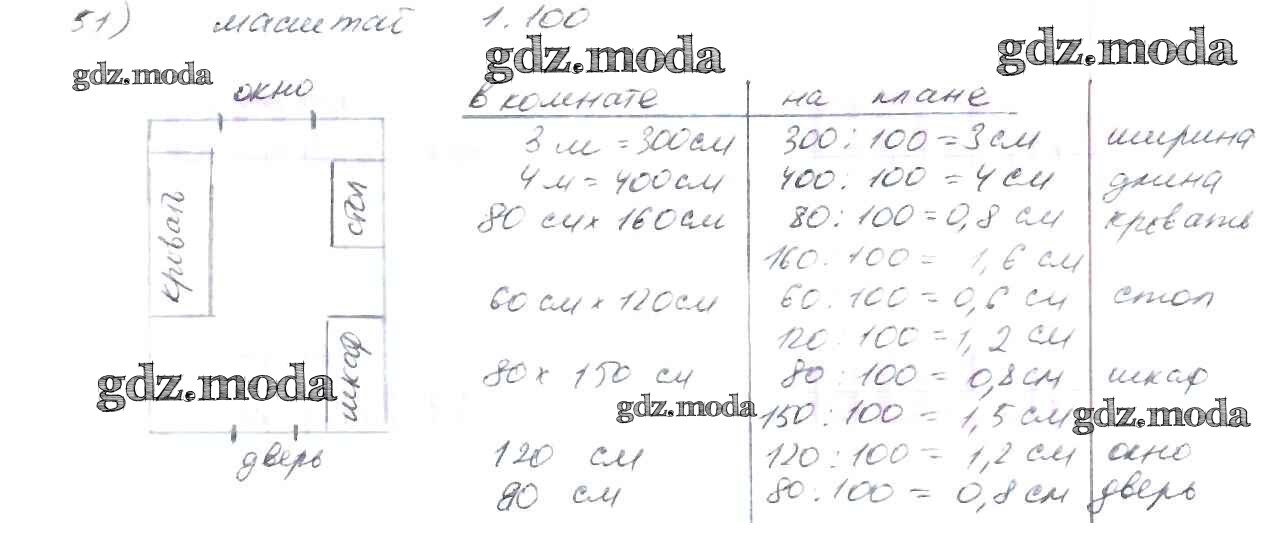 51) масштаб 1:100
gdz.moda
gdz.moda
gdz.moda
окно
в комнате на плане
3 м = 300см 300:100 = 3см ширина
4 м = 400см 400:100 = 4 см длина
80 см × 160см 80:100 = 0,8 см кровать
160:100 = 1,6 см
60 см × 120см 60:100 = 0,6 см стол
120:100 = 1,2 см
80 × 150 см 80:100 = 0,8 см шкаф
150:100 = 1,5 см
120 см 120:100 = 1,2 см окно
80 см 80:100 = 0,8 см дверь
кровать
стол
шкаф
gdz.moda
gdz.moda
gdz.moda
дверь